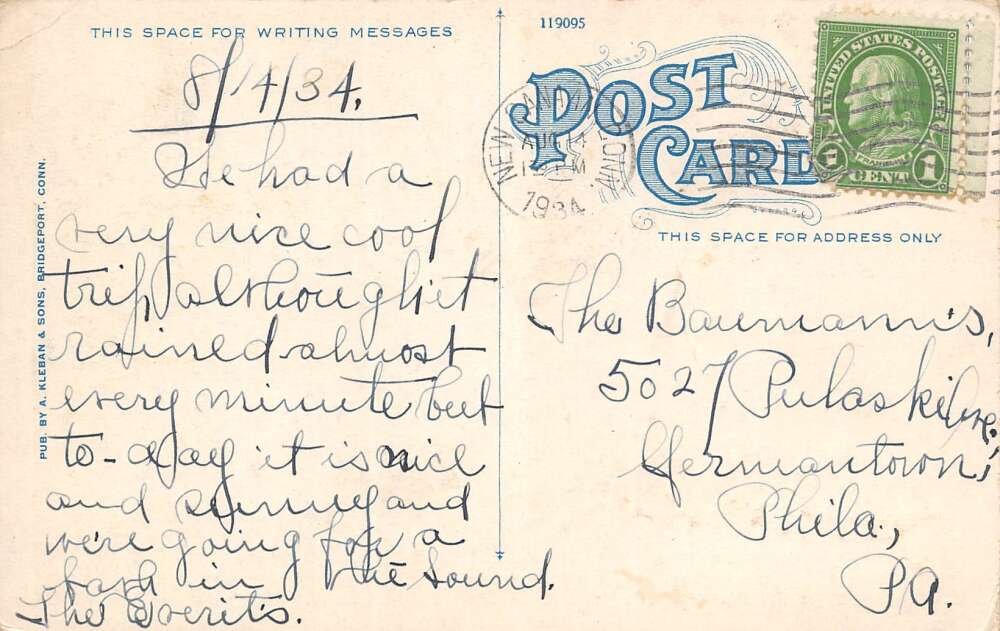 THIS SPACE FOR WRITING MESSAGES
8/14/34.
We had a
very nice cool
trip although it
rained almost
every minute but
to-day it is nice
and sunny and
we're going for a
bath in the Sound.
The Everits.
PUB. BY A. KLEBAN & SONS, BRIDGEPORT, CONN.
119095
POST CARD
THIS SPACE FOR ADDRESS ONLY
NEW CONN.
AUG 14
1934
UNITED STATES POSTAGE
FRANKLIN
1 CENT 1
The Baumann's,
5027 Pulaski Ave.,
Germantown,
Phila.,
PA.